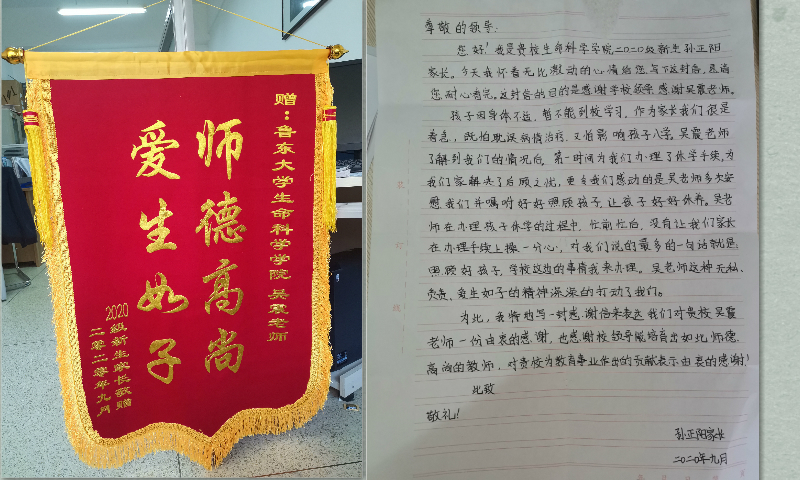 赠：鲁东大学生命科学学院 吴震老师
师德高尚
爱生如子
2020级新生家长敬赠
二零二零年九月
尊敬的领导：
您好！我是贵校生命科学学院二〇二〇级新生孙正阳
家长。今天我怀着无比激动的心情给您写下这封信，恳请
您耐心看完。这封信的目的是感谢学校领导，感谢吴震老师。
孩子因身体不适，暂不能到校学习，作为家长我们很是
着急，既怕耽误病情治疗，又怕影响孩子入学。吴震老师
了解到我们的情况后，第一时间为我们办理了休学手续，为
我们家解决了后顾之忧，更令我们感动的是吴老师多次安
慰我们并嘱咐好好照顾孩子，让孩子好好休养。吴老
师在办理孩子休学的过程中，忙前忙后，没有让我们家长
在办理手续上操一分心，对我们说的最多的一句话就是：
照顾好孩子，学校这边的事情我来办理。吴老师这种无私、
负责、爱生如子的精神深深的打动了我们。
为此，我特地写一封感谢信来表达我们对贵校吴震
老师一份由衷的感谢，也感谢校领导能培育出如此师德
高尚的教师，对贵校为教育事业作出的贡献表示由衷的感谢！
此致
敬礼！
孙正阳家长
二〇二〇年九月